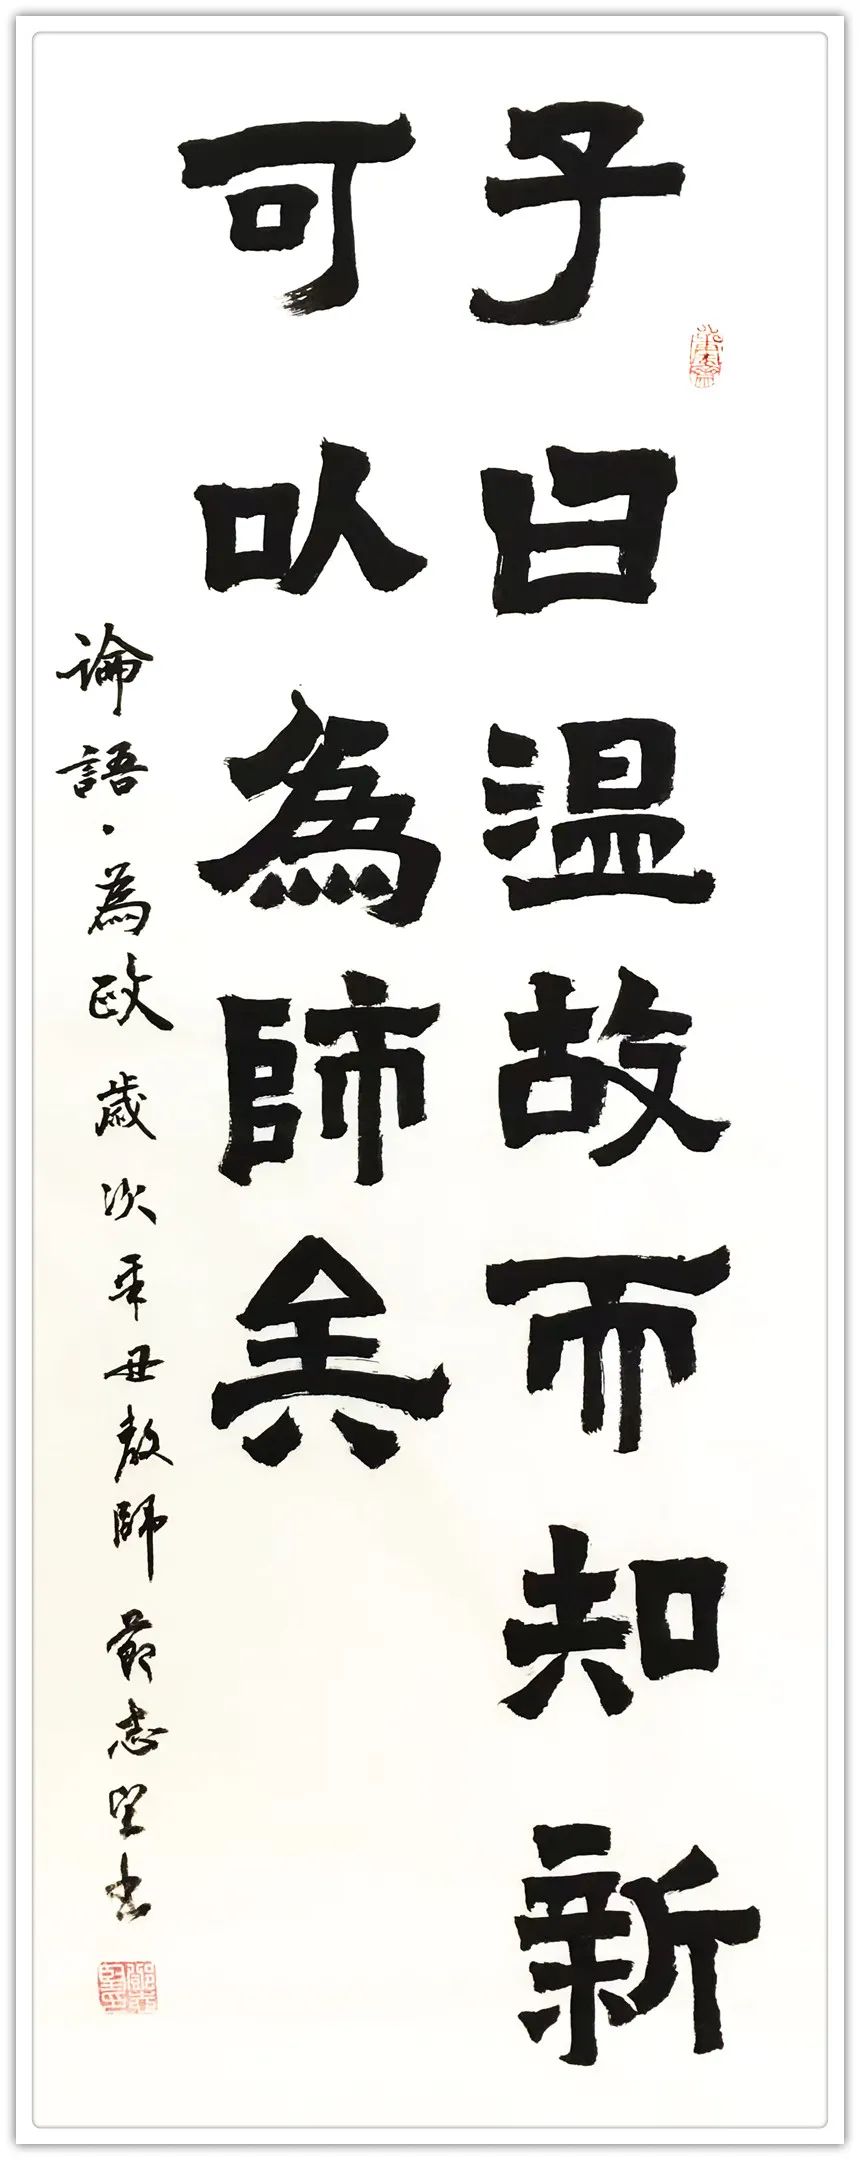 子曰温故而知新
可以為師矣
論語·為政 歲次辛丑教師節志堅書